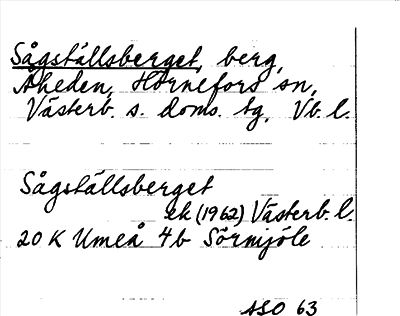 Sågställsberget, berg,
Åheden, Hörnefors sn,
Västerb. s. doms. tg, Vb. l.
Sågställsberget
ek (1962) Västerb. l.
20 K Umeå 4b Sörmjöle
ASO 63